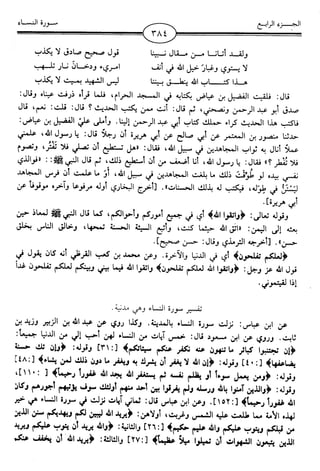 الجزء الرابع
٣٨٤
سورة النساء
ولقد أتانا من مقال نبينا
قول صحيح صادق لا يكذب
لا يستوي وغبار خيل الله في أنف
امرىء ودخان نار تلهب
هذا كتاب الله ينطق بيننا
ليس الشهيد بميت لا يكذب
قال: فلقيت الفضيل بن عياض بكتابه في المسجد الحرام، فلما قرأه ذرفت عيناه وقال:
صدق أبو عبد الرحمن ونصحني، ثم قال: أنت ممن يكتب الحديث؟ قال: قلت: نعم، قال
فاكتب هذا الحديث كراء حملك كتاب أبي عبد الرحمن إلينا. وأملى عليّ الفضيل بن عياض:
حدثنا منصور بن المعتمر عن أبي صالح عن أبي هريرة أن رجلاً قال: يا رسول الله، علمني
عملاً أنال به ثواب المجاهدين في سبيل الله، فقال: «هل تستطيع أن تصلي فلا تفتر، وتصوم
فلا تفطر؟» فقال: يا رسول الله، أنا أضعف من أن أستطيع ذلك، ثم قال النبي ﷺ: «فوالذي
نفسي بيده لو طوقت ذلك ما بلغت المجاهدين في سبيل الله، أو ما علمت أن فرس المجاهد
ليستن في طوله، فيكتب له بذلك الحسنات». [أخرج البخاري أوله مرفوعاً وآخره موقوفاً عن
أبي هريرة].
وقوله تعالى: ﴿واتقوا الله﴾ أي في جميع أموركم وأحوالكم، كما قال النبي ﷺ لمعاذ حين
بعثه إلى اليمن: «اتق الله حيثما كنت، وأتبع السيئة الحسنة تمحها، وخالق الناس بخلق
حسن». [أخرجه الترمذي وقال: حسن صحيح].
﴿لعلكم تفلحون﴾ أي في الدنيا والآخرة. وعن محمد بن كعب القرظي أنه كان يقول في
قول الله عز وجل: ﴿واتقوا الله لعلكم تفلحون﴾ واتقوا الله فيما بيني وبينكم لعلكم تفلحون غداً
إذا لقيتموني.
تفسير سورة النساء وهي مدنية.
عن ابن عباس: نزلت سورة النساء بالمدينة. وكذا روي عن عبد الله بن الزبير وزيد بن
ثابت. وروي عن ابن مسعود قال: خمس آيات من النساء لهن أحب إلي من الدنيا جميعاً:
﴿إن تجتنبوا كبائر ما تنهون عنه نكفر عنكم سيئاتكم﴾ [٣١:] وقوله: ﴿وإن تك حسنة
يضاعفها﴾ [٤٠:] وقوله: ﴿إن الله لا يغفر أن يشرك به ويغفر ما دون ذلك لمن يشاء﴾ [٤٨:]
وقوله: ﴿ومن يعمل سوءاً أو يظلم نفسه ثم يستغفر الله يجد الله غفوراً رحيماً﴾ [١١٠:]،
وقوله: ﴿والذين آمنوا بالله ورسله ولم يفرقوا بين أحد منهم أولئك سوف يؤتيهم أجورهم وكان
الله غفوراً رحيماً﴾ [١٥٢:]. وعن ابن عباس قال: ثماني آيات نزلت في سورة النساء هي خير
لهذه الأمة مما طلعت عليه الشمس وغربت، أولاهن: ﴿يريد الله ليبين لكم ويهديكم سنن الذين
من قبلكم ويتوب عليكم والله عليم حكيم﴾ [٢٦:] والثانية: ﴿والله يريد أن يتوب عليكم ويريد
الذين يتبعون الشهوات أن تميلوا ميلاً عظيماً﴾ [٢٧:] والثالثة: ﴿يريد الله أن يخفف عنكم